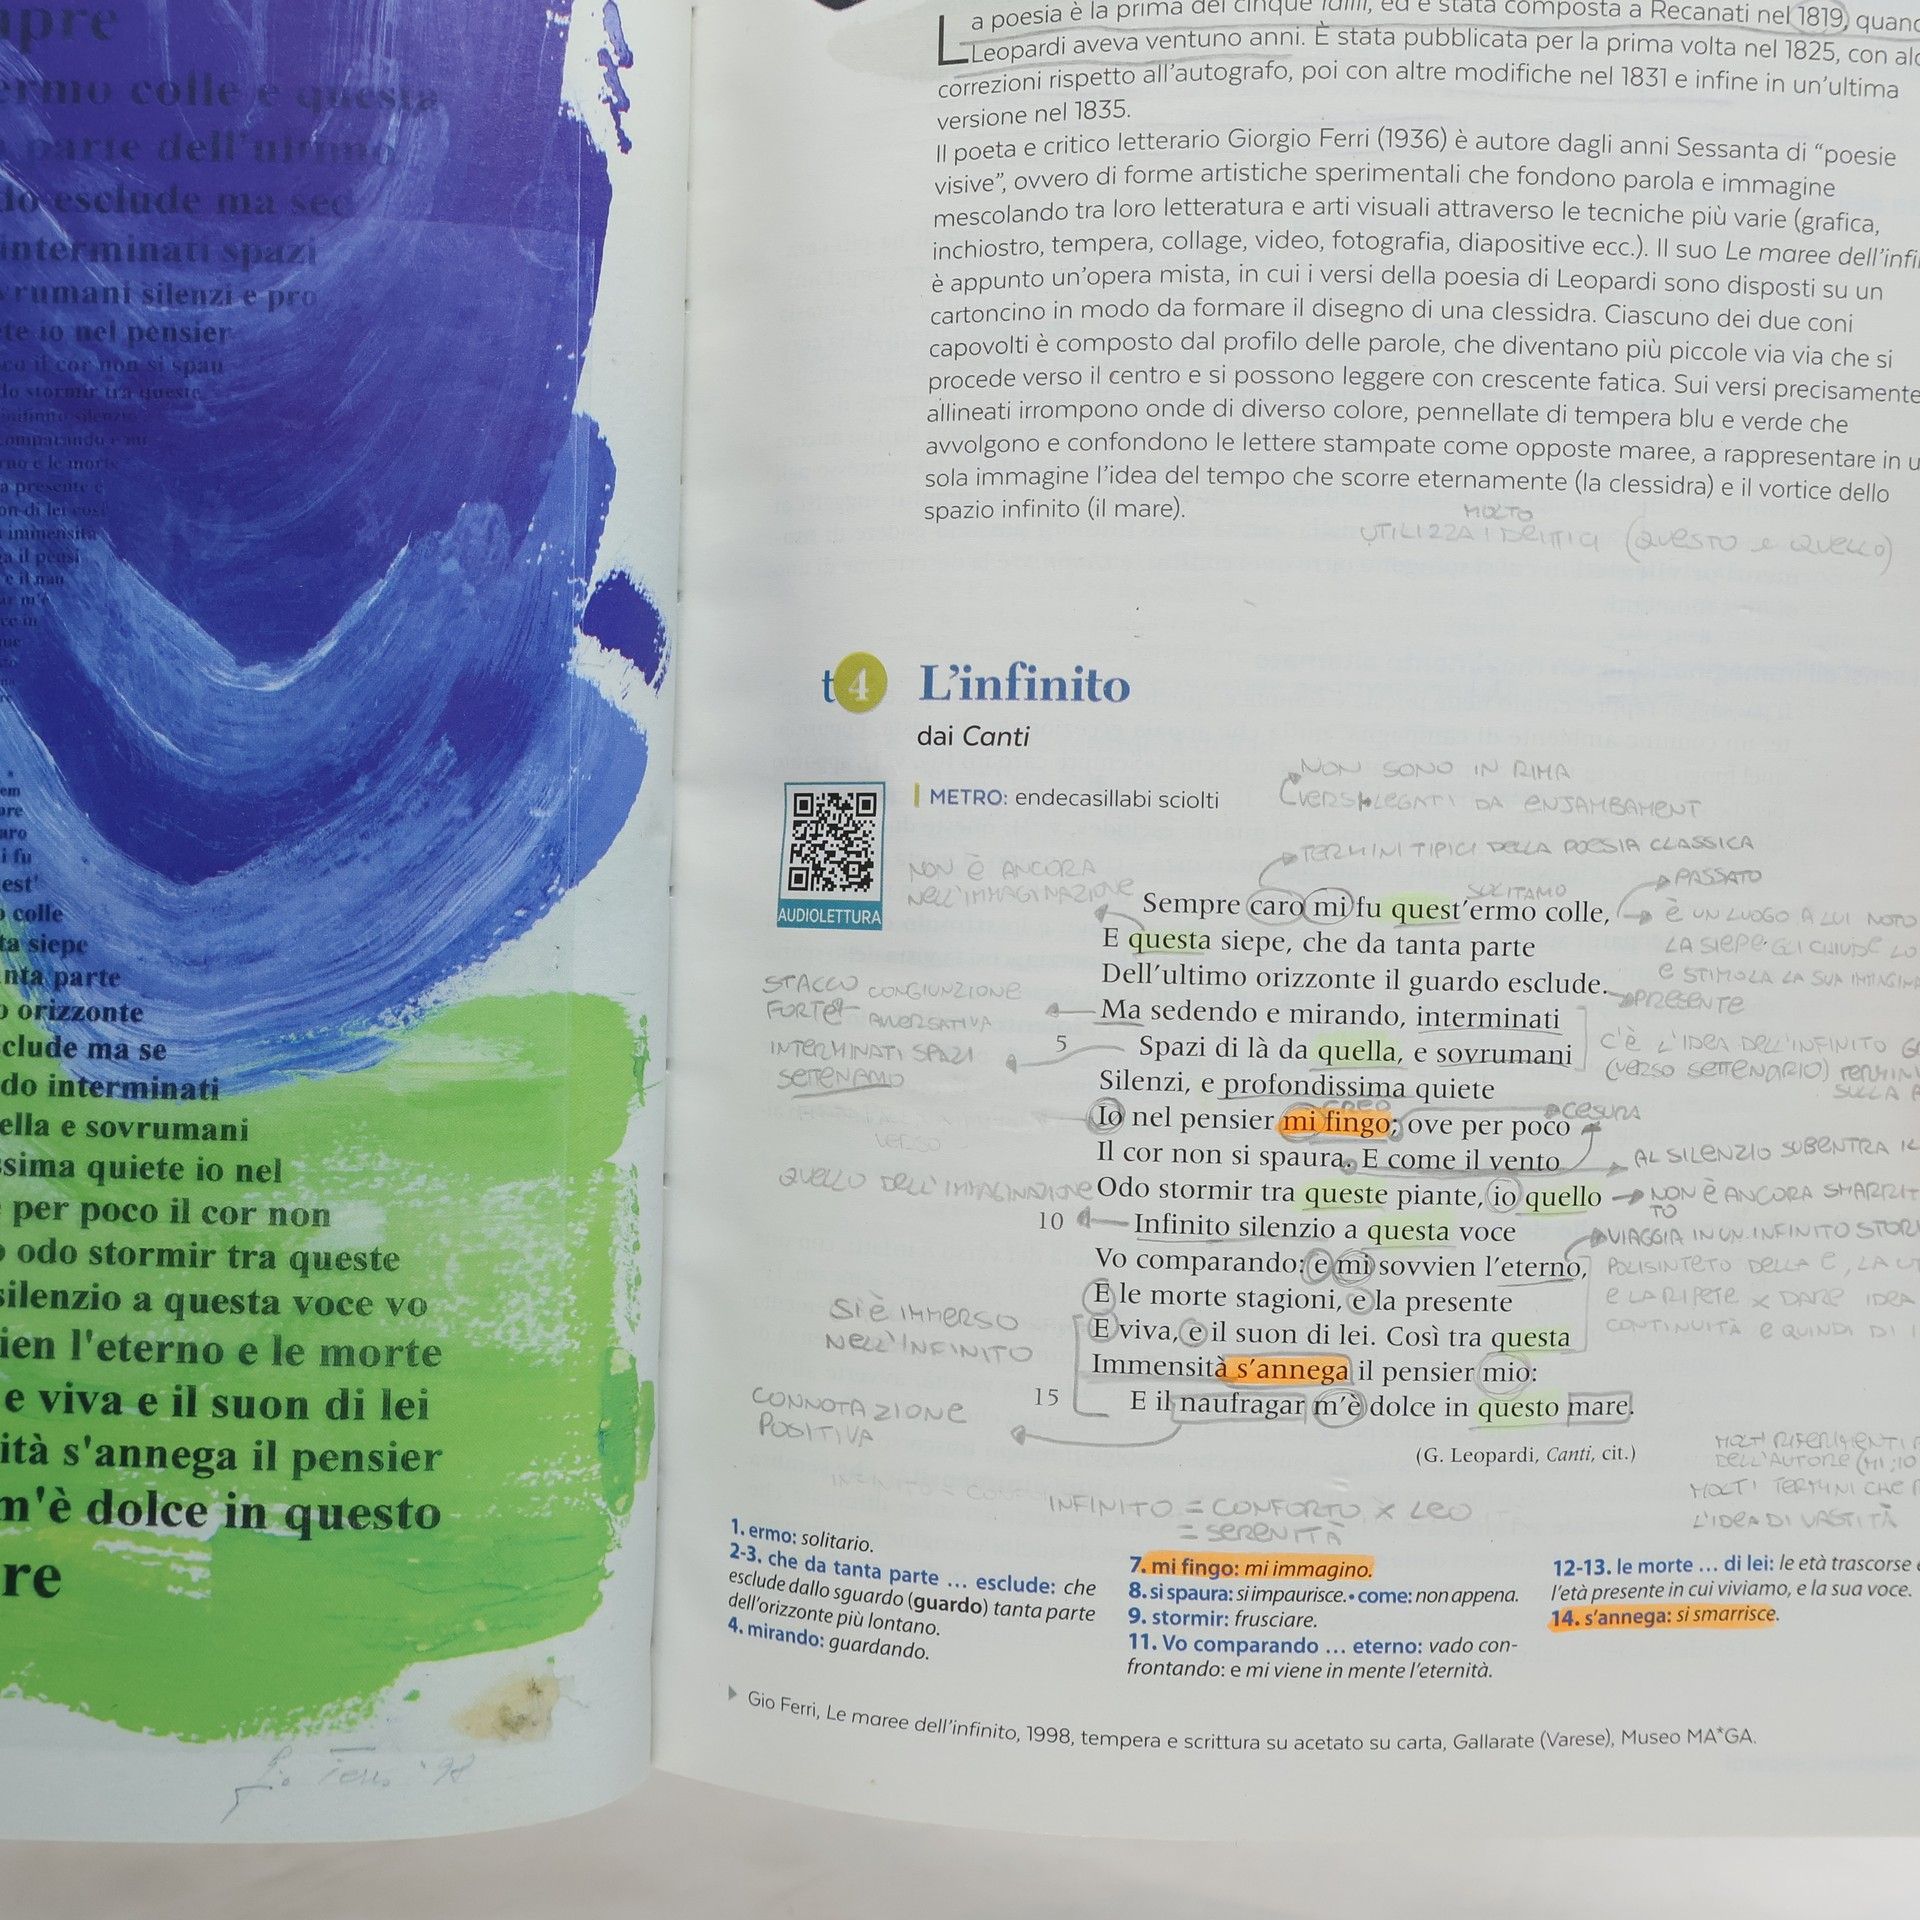 ermo colle e questa
parte dell'ultimo
do esclude ma sec
interminati spazi
vrumani silenzi e pro
te io nel pensier
co il cor non si spau
do stormir tra queste
infinito silenzio
omparando e mi
rno e le morte
a presente e
on di lei così
immensità
ga il pensi
e il nau
ar m'è
ce in
em
ore
aro
i fu
est'
o colle
ta siepe
nta parte
o orizzonte
clude ma se
do interminati
ella e sovrumani
ssima quiete io nel
per poco il cor non
o odo stormir tra queste
silenzio a questa voce vo
ien l'eterno e le morte
e viva e il suon di lei
ità s'annega il pensier
m'è dolce in questo
re
'98
La poesia è la prima dei cinque Idilli, ed è stata composta a Recanati nel 1819, quand
Leopardi aveva ventuno anni. È stata pubblicata per la prima volta nel 1825, con alc
correzioni rispetto all'autografo, poi con altre modifiche nel 1831 e infine in un'ultima
versione nel 1835.
Il poeta e critico letterario Giorgio Ferri (1936) è autore dagli anni Sessanta di “poesie
visive”, ovvero di forme artistiche sperimentali che fondono parola e immagine
mescolando tra loro letteratura e arti visuali attraverso le tecniche più varie (grafica,
inchiostro, tempera, collage, video, fotografia, diapositive ecc.). Il suo Le maree dell'infi
è appunto un'opera mista, in cui i versi della poesia di Leopardi sono disposti su un
cartoncino in modo da formare il disegno di una clessidra. Ciascuno dei due coni
capovolti è composto dal profilo delle parole, che diventano più piccole via via che si
procede verso il centro e si possono leggere con crescente fatica. Sui versi precisamente
allineati irrompono onde di diverso colore, pennellate di tempera blu e verde che
avvolgono e confondono le lettere stampate come opposte maree, a rappresentare in u
sola immagine l'idea del tempo che scorre eternamente (la clessidra) e il vortice dello
spazio infinito (il mare).
MOLTO
UTILIZZA I DEITTICI (QUESTO e QUELLO)
t4 L'infinito
dai Canti
NON SONO IN RIMA
METRO: endecasillabi sciolti
VERSI LEGATI DA ENJAMBAMENT
AUDIOLETTURA
TERMINI TIPICI DELLA POESIA CLASSICA
NON È ANCORA
NELL'IMMAGINAZIONE
SOLITAMO
PASSATO
Sempre caro mi fu quest'ermo colle,
È UN LUOGO A LUI NOTO
E questa siepe, che da tanta parte
LA SIEPE GLI CHIUDE LO
Dell'ultimo orizzonte il guardo esclude.
E STIMOLA LA SUA IMMAGINA
PRESENTE
STACCO CONGIUNZIONE
FORTE AVVERSATIVA
Ma sedendo e mirando, interminati
C'È L'IDEA DELL'INFINITO
INTERMINATI SPAZI
SETTENARIO
5 Spazi di là da quella, e sovrumani
(VERSO SETTENARIO)
SULLA
Silenzi, e profondissima quiete
CREO
CESURA
Io nel pensier mi fingo; ove per poco
VERSO
Il cor non si spaura. E come il vento
AL SILENZIO SUBENTRA IL
QUELLO DELL'IMMAGINAZIONE
Odo stormir tra queste piante, io quello
NON È ANCORA SMARRI
TO
10 Infinito silenzio a questa voce
VIAGGIA IN UN INFINITO STOR
Vo comparando: e mi sovvien l'eterno,
POLISINTETO DELLA E, LA U
E le morte stagioni, e la presente
E LA RIPETE X DARE IDEA
SI È IMMERSO
NELL'INFINITO
E viva, e il suon di lei. Così tra questa
CONTINUITÀ E QUINDI DI
Immensità s'annega il pensier mio:
CONNOTAZIONE
POSITIVA
15 E il naufragar m'è dolce in questo mare.
(G. Leopardi, Canti, cit.)
MOLTI RIFERIMENTI
DELL'AUTORE (MI, IO
MOLTI TERMINI CHE
L'IDEA DI VASTITÀ
INFINITO = CONFORTO X LEO
= SERENITÀ
1. ermo: solitario.
2-3. che da tanta parte ... esclude: che
esclude dallo sguardo (guardo) tanta parte
dell'orizzonte più lontano.
4. mirando: guardando.
7. mi fingo: mi immagino.
8. si spaura: si impaurisce. • come: non appena.
9. stormir: frusciare.
11. Vo comparando ... eterno: vado con-
frontando: e mi viene in mente l'eternità.
12-13. le morte ... di lei: le età trascorse e
l'età presente in cui viviamo, e la sua voce.
14. s'annega: si smarrisce.
Gio Ferri, Le maree dell'infinito, 1998, tempera e scrittura su acetato su carta, Gallarate (Varese), Museo MA*GA.